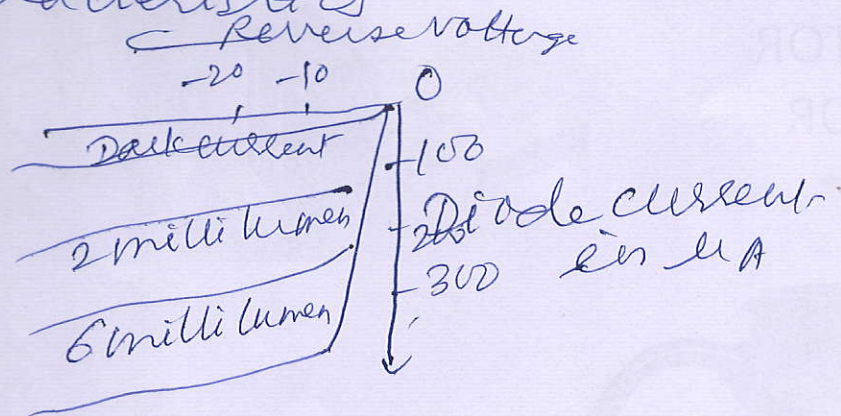 Reverse voltage
-20 -10 0
Dark current
100
2 milli lumen
200
Diode current
in µA
300
6 milli lumen